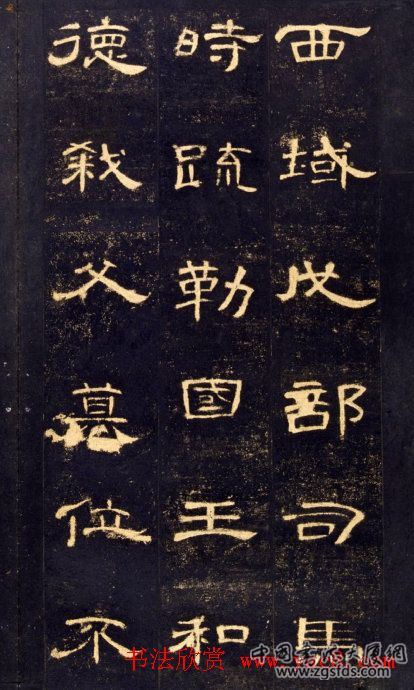 西域戊部司馬
時疏勒國王和
德弒父篡位不
书法欣赏 www.yac8.com
中国书法大赛网
www.zgsfds.com